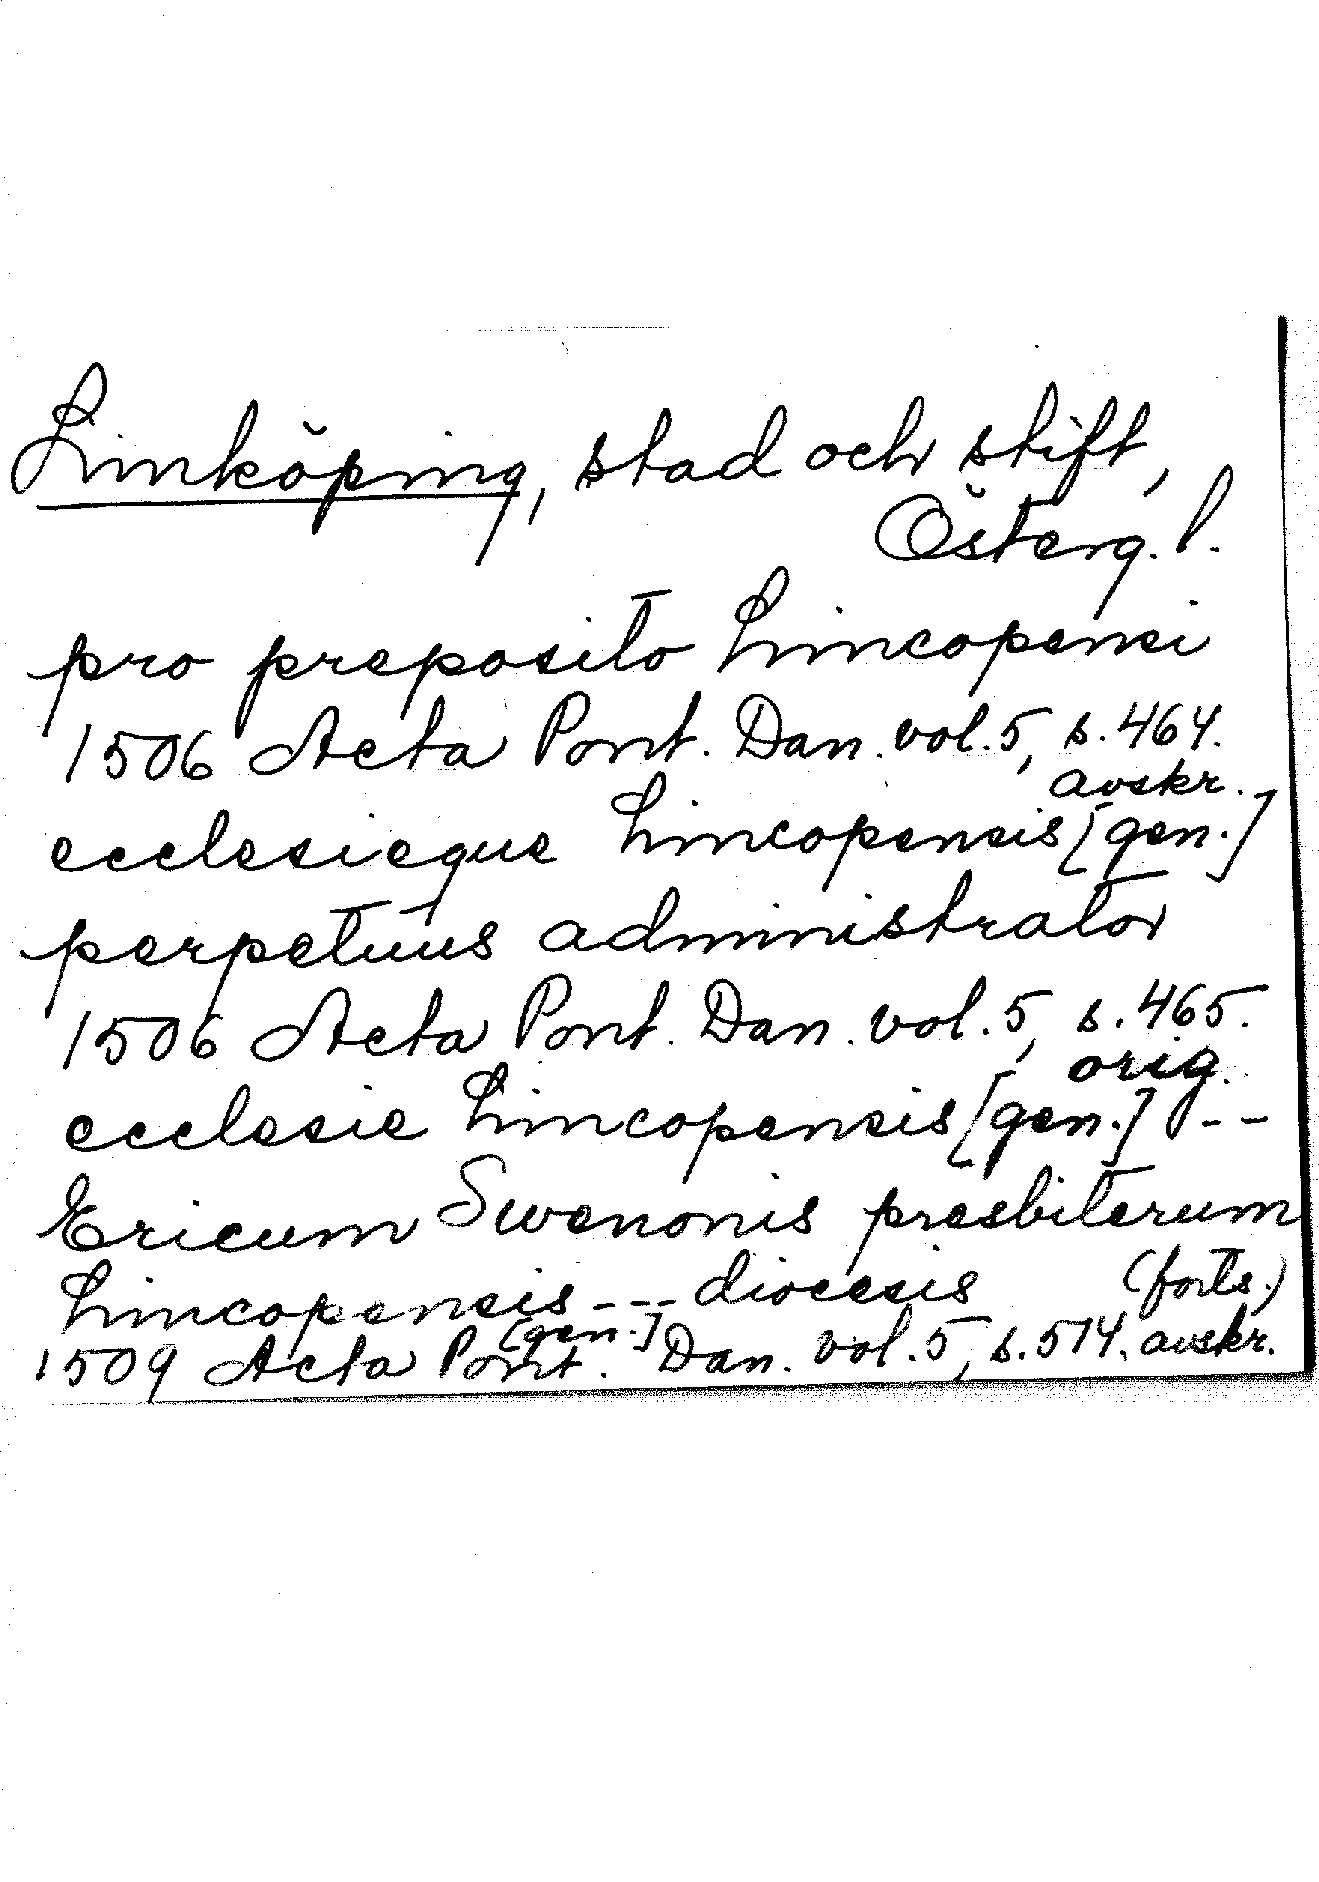 Linköping, stad och stift,
Österg. l.
pro preposito Lincopensi
1506 Acta Pont. Dan. vol. 5, s. 464.
avskr.
ecclesieque Lincopensis [gen.]
perpetuus administrator
1506 Acta Pont. Dan. vol. 5, s. 465.
orig.
ecclesie Lincopensis [gen.] ---
Ericum Swenonis presbiterum
Lincopensis --- diocesis (forts.)
[gen.]
1509 Acta Pont. Dan. vol. 5, s. 514. avskr.